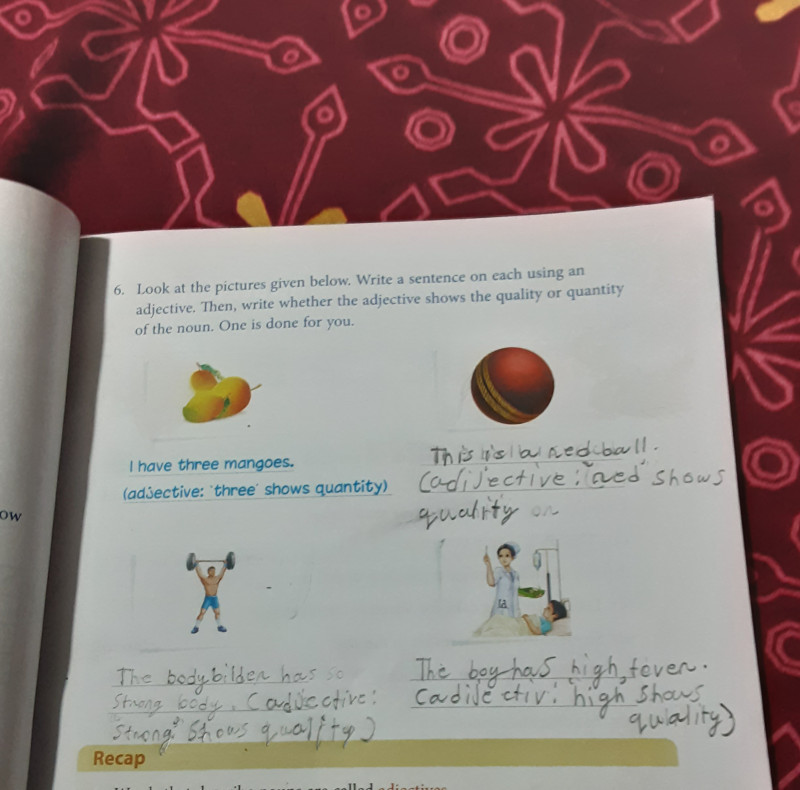 6. Look at the pictures given below. Write a sentence on each using an
adjective. Then, write whether the adjective shows the quality or quantity
of the noun. One is done for you.
I have three mangoes.
(adjective: 'three' shows quantity)
This is a red ball.
(adijective: 'red' shows
quality
The bodybilder has so
strong body. (adjective:
strong" shows quality)
The boy has high fever.
(adijectiv: high shows
quality)
ow
Recap